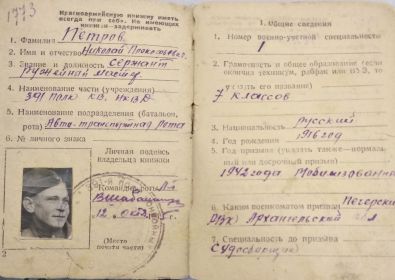 1973
Красноармейскую книжку иметь
всегда при себе. Не имеющих
книжки-задерживать
1. Фамилия Петров
2. Имя и отчество Николай
3. Звание и должность Сержант
Ружейный мастер
4. Наименование части (учреждения)
391 Полк КВ. НКВД
5. Наименование подразделения (батальон,
рота) Авто-транспортная Рота
6. № личного знака
Личная подпись
владельца книжки
Командир роты
12 окт
(Место
печати части)
2
I. Общие сведения
1. Номер военно-учетной специальности
1
2. Грамотность и общее образование (если
окончил техникум, рабфак или ВУЗ, то
указать его название)
7 классов
3. Национальность русский
4. Год рождения 1916 год
5. Год призыва (указать также—нормальный
или досрочный призыв)
1942 года Мобилизован
6. Каким военкоматом призван Печорский
РВК Архангельской обл
7. Специальность до призыва
Судосборщик